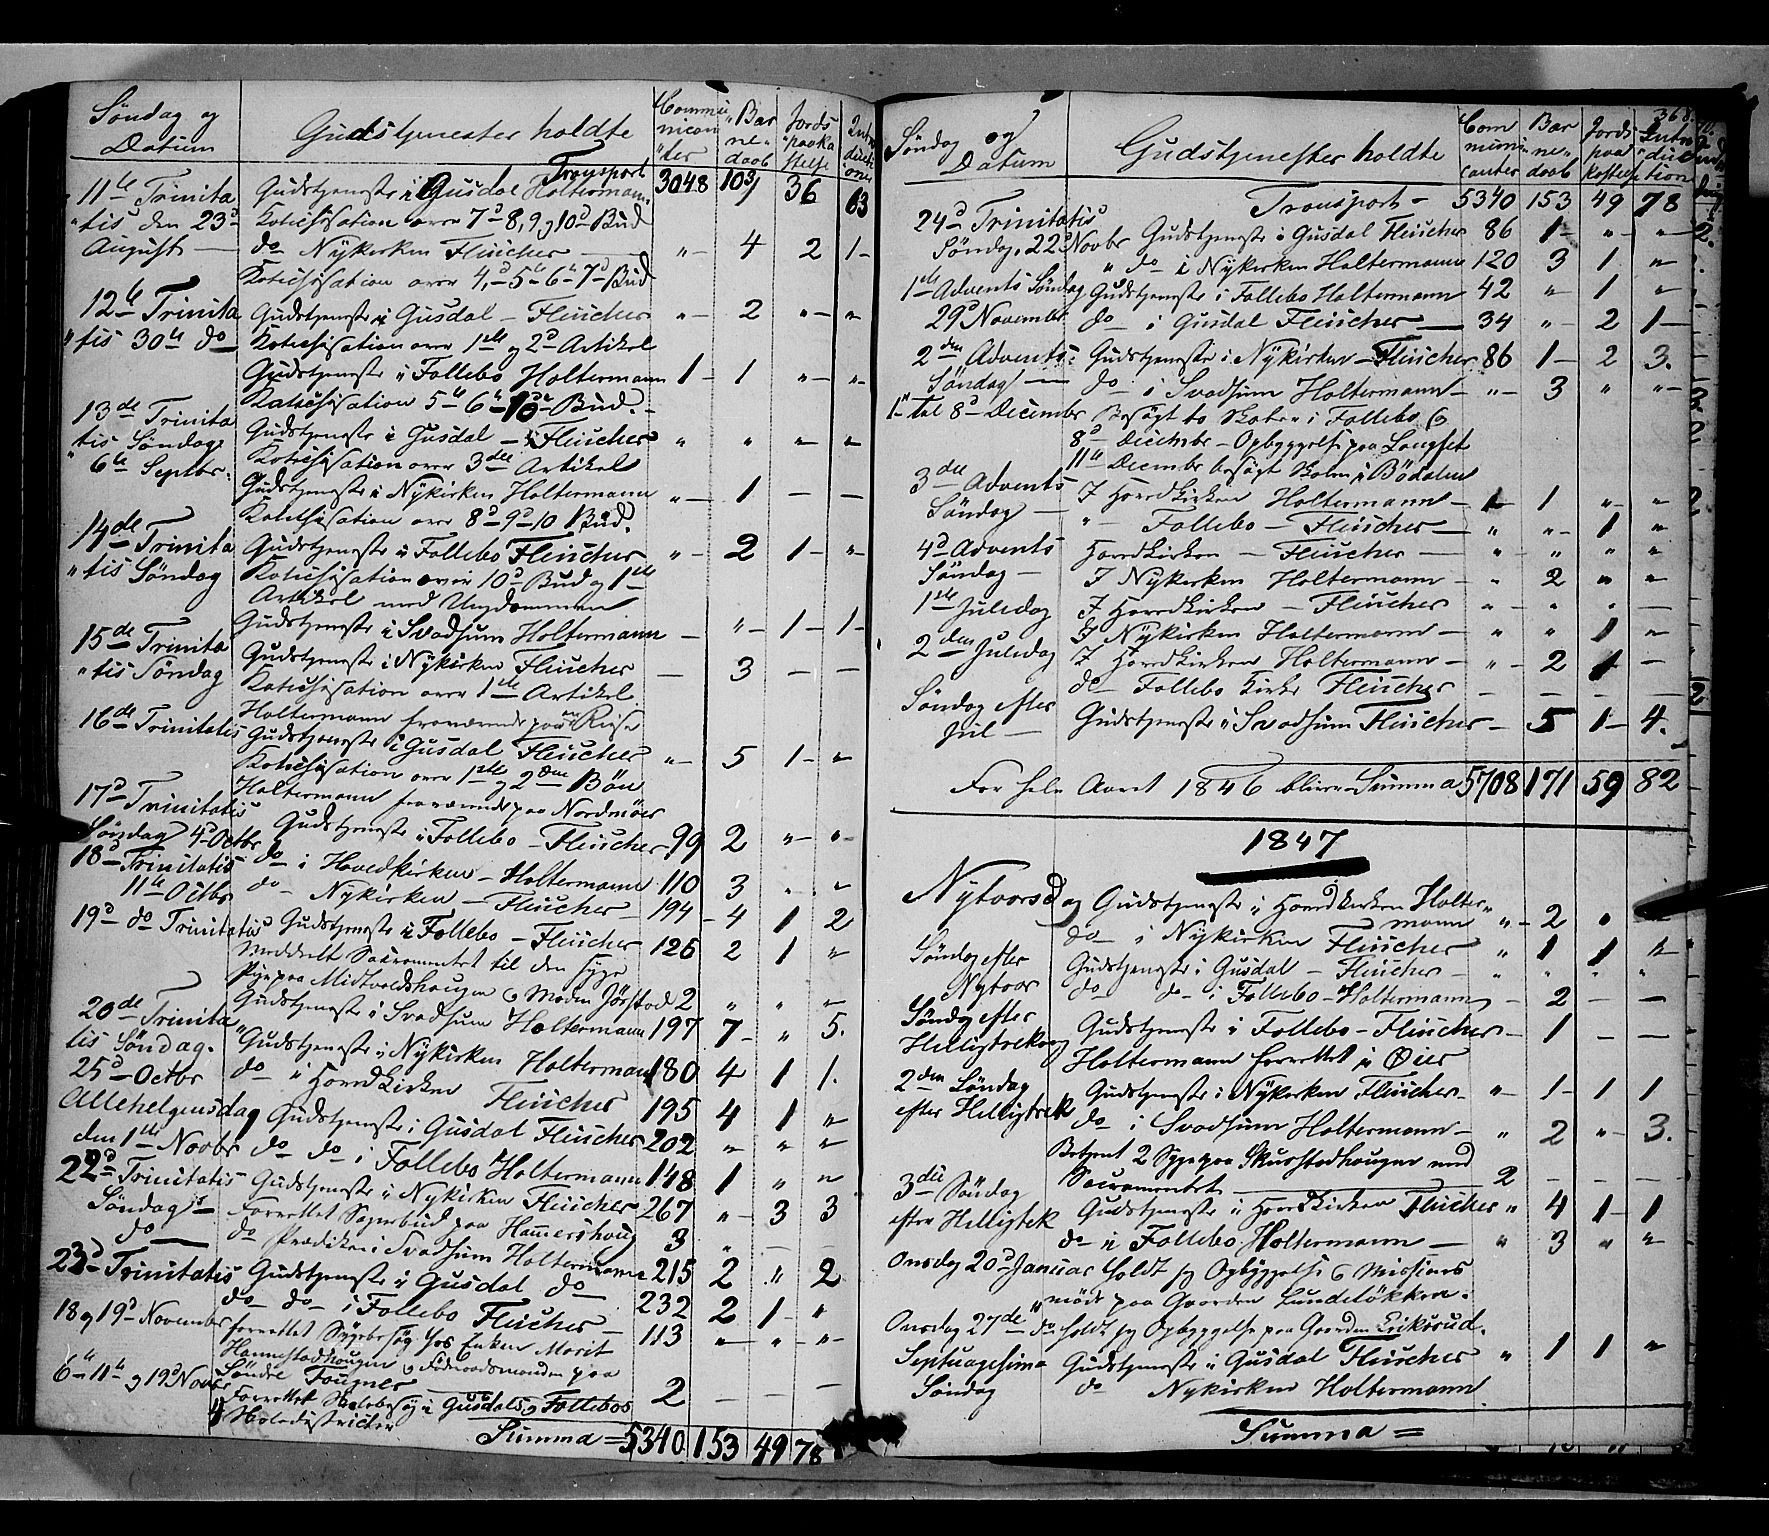 Søndag og Datum | Gudstjenester holdte | Communicanter | Barnedaab | Jordspaakastelse | Introductioner
Transport 3048 103 36 63
11te Trinita Gudstjeneste i Gusdal Holtermann
"tis den 23d Katechisation over 7d 8, 9 og 10d Bud
August — do Nykirken Fleischer — " 4 2 1
Katechisation over 4d 5te 6te 7d Bud
12te Trinita Gudstjeneste i Gusdal — Fleischer " 2 " "
"tis 30te do Katechisation over 1ste og 2d Artikel
Gudstjeneste i Follebo Holtermann 1 1 " "
Katechisation 5te 6te 10de Bud.
13de Trinita Gudstjeneste i Gusdal — Fleischer " " " "
tis Søndag Katechisation over 3die Artikel
6te Septbr. Gudstjeneste i Nykirken Holtermann " 1 — —
Katechisation over 8d 9d 10 Bud.
14de Trinita Gudstjeneste i Follebo Fleischer " 2 1 "
"tis Søndag Katechisation over 10d Bud og 1ste
Artikel med Ungdommen
Gudstjeneste i Svadsum Holtermann — " 1 1
15de Trinita Gudstjeneste i Nykirken Fleischer — 3 — —
"tis Søndag Katechisation over 1ste Artikel
Holtermann fraværende paa en Reise
16de Trinitatis Gudstjeneste i Gusdal Fleischer " 5 1 "
Katechisation over 1ste og 2den Bøn
Holtermann fraværende paa Nordmøer
17d Trinitatis Gudstjeneste i Follebo — Fleischer 99 2 " "
Søndag 4d Octbr do i Hovedkirken — Holtermann 110 3 " "
18d Trinitatis do Nykirken — Fleischer 194 4 1 2
11te Octbr
19d do Trinitatis Gudstjeneste i Follebo — Fleischer 126 2 1 "
Meddelt Sacramentet til den syge
Pige paa Midtvoldshougen og Jørstad 2 " " "
20de Trinita Gudstjeneste i Svadsum Holtermann 197 7 " 5.
tis Søndag. Gudstjeneste i Nykirken Holtermann 180 4 1 1.
25d Octbr do i Hovedkirken Fleischer 195 4 1 "
Allehelgensdag Gudstjeneste i Gusdal Fleischer 202 " " "
den 1ste Novbr do do i Follebo Holtermann 148 1 " "
22d Trinitatis Gudstjeneste i Nykirken Fleischer 267 " 3 3
Søndag Forrettet Sognebud paa Hammershoug 3 " — —
do do Prædiken i Svadsum Holtermann 215 2 " 2
23d Trinitatis Gudstjeneste i Gusdal do 232 2 1 "
do do i Follebo Fleischer 113 " " "
18 og 19d November forrettet Sygebesøg hos Enken Marit
Hannestadhougen og paa
Søndre Fougner 2 — — —
6te 11te og 19d Novbr Forrettet Skolebesøg i Gusdals og Follebos
Skoledistricter
Summa = 5340 153 49 78
368.
Søndag og Datum | Gudstjenester holdte | Communicanter | Barnedaab | Jordspaakastelse | Introduction
Transport — 5340 153 49 78
24d Trinitatis
Søndag. 22d Novbr Gudstjeneste i Gusdal Fleischer 86 1 " "
" do i Nykirken Holtermann 120 3 1 "
1ste Advents Søndag Gudstjeneste i Follebo Holtermann 42 " 1 "
29d November do i Gusdal Fleischer — 34 " 2 1
2den Advents: Gudstjeneste i Nykirken — Fleischer 86 1 2 3.
Søndag — do i Svadsum Holtermann — " 3 " "
1ste til 8d December Besøgt to Skoler i Follebo og
8d December Opbyggelse paa Langset
11te December besøgt Skolen i Bødalen
3die Advents I Hovedkirken Holtermann — 1 1 " "
Søndag — " Follebo — Fleischer — " " 1 "
4d Advents Hovedkirken — Fleischer — " " " "
Søndag — I Nykirken Holtermann — " 2 " "
1ste Juledag I Hovedkirken — Fleischer " " " —
I Nykirken Holtermann — " " 1 "
2den Juledag I Hovedkirken Holtermann — " 2 1 —
do Follebo Kirke Fleischer — — — —
Søndag efter Jul — Gudstjeneste i Svadsum Fleischer — 5 1 4.
For hele Aaret 1846 bliver Summa 5708 171 59 82
1847
Nytaarsdag Gudstjeneste i Hovedkirken Holtermann " 2 " "
do i Nykirken Fleischer " 1 1 "
Søndag efter Gudstjeneste i Gusdal — Fleischer — " " " "
Nytaar do do i Follebo — Holtermann — 2 — —
Søndag efter Gudstjeneste i Follebo — Fleischer — 1 — —
Helligtrekong Holtermann forrettet i Øier
2den Søndag Gudstjeneste i Nykirken Fleischer " 1 1 1
efter Helligtrek do i Svadsum Holtermann — " 2 " 3.
Betjent 2 Syge paa Skurstadhougen med
Sacramentet — 2 — — —
3die Søndag Gudstjeneste i Hovedkirken Fleischer " 4 1 1
efter Helligtrek do i Follebo Holtermann — " 3 " "
Onsdag 20d Januar holdt jeg Opbyggelse og Missions
møde paa Gaarden Lundeløkken.
Onsdag 27de " do holdt jeg Opbyggelse paa Gaarden Eriksrud.
Septuagesima Gudstjeneste i Gusdal Fleischer " 1 1 "
Søndag do Nykirken Holtermann
Summa =